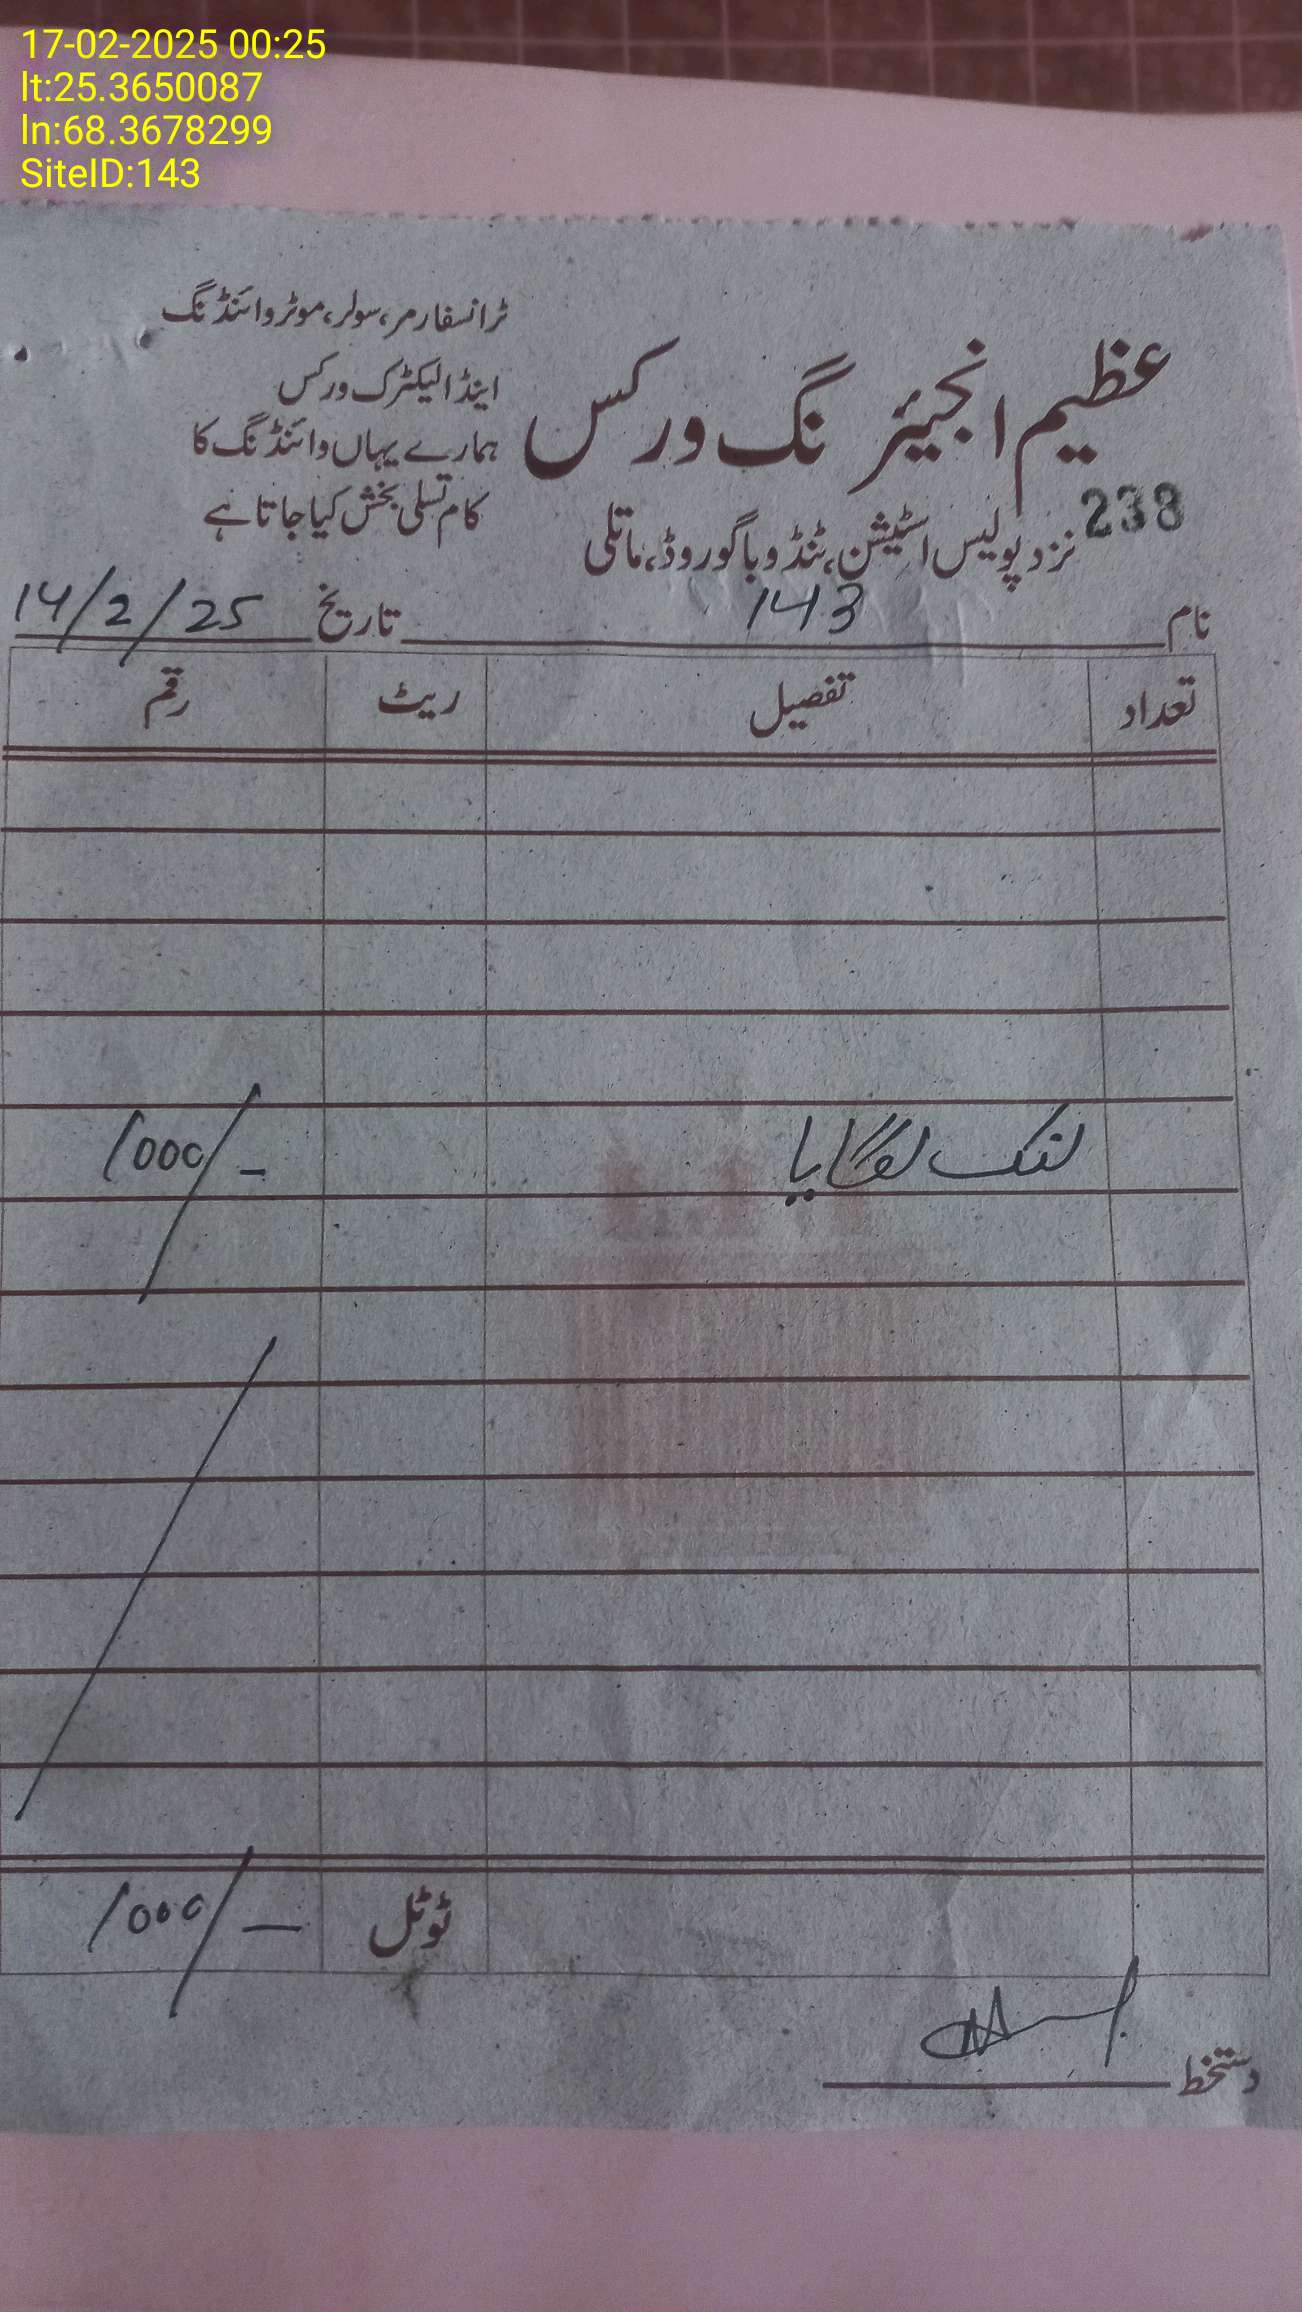 17-02-2025 00:25
lt:25.3650087
ln:68.3678299
SiteID:143
عظیم انجیئرنگ ورکس
ٹرانسفارمر، سولر، موٹر وائنڈنگ
اینڈ الیکٹرک ورکس
ہمارے یہاں وائنڈنگ کا
کام تسلی بخش کیا جاتا ہے
238
نزد پولیس اسٹیشن، ٹنڈو باگو روڈ، ماتلی
نام 143 تاریخ 14/2/25
تعداد تفصیل ریٹ رقم
لنک لگایا 1000/-
ٹوٹل 1000/-
دستخط